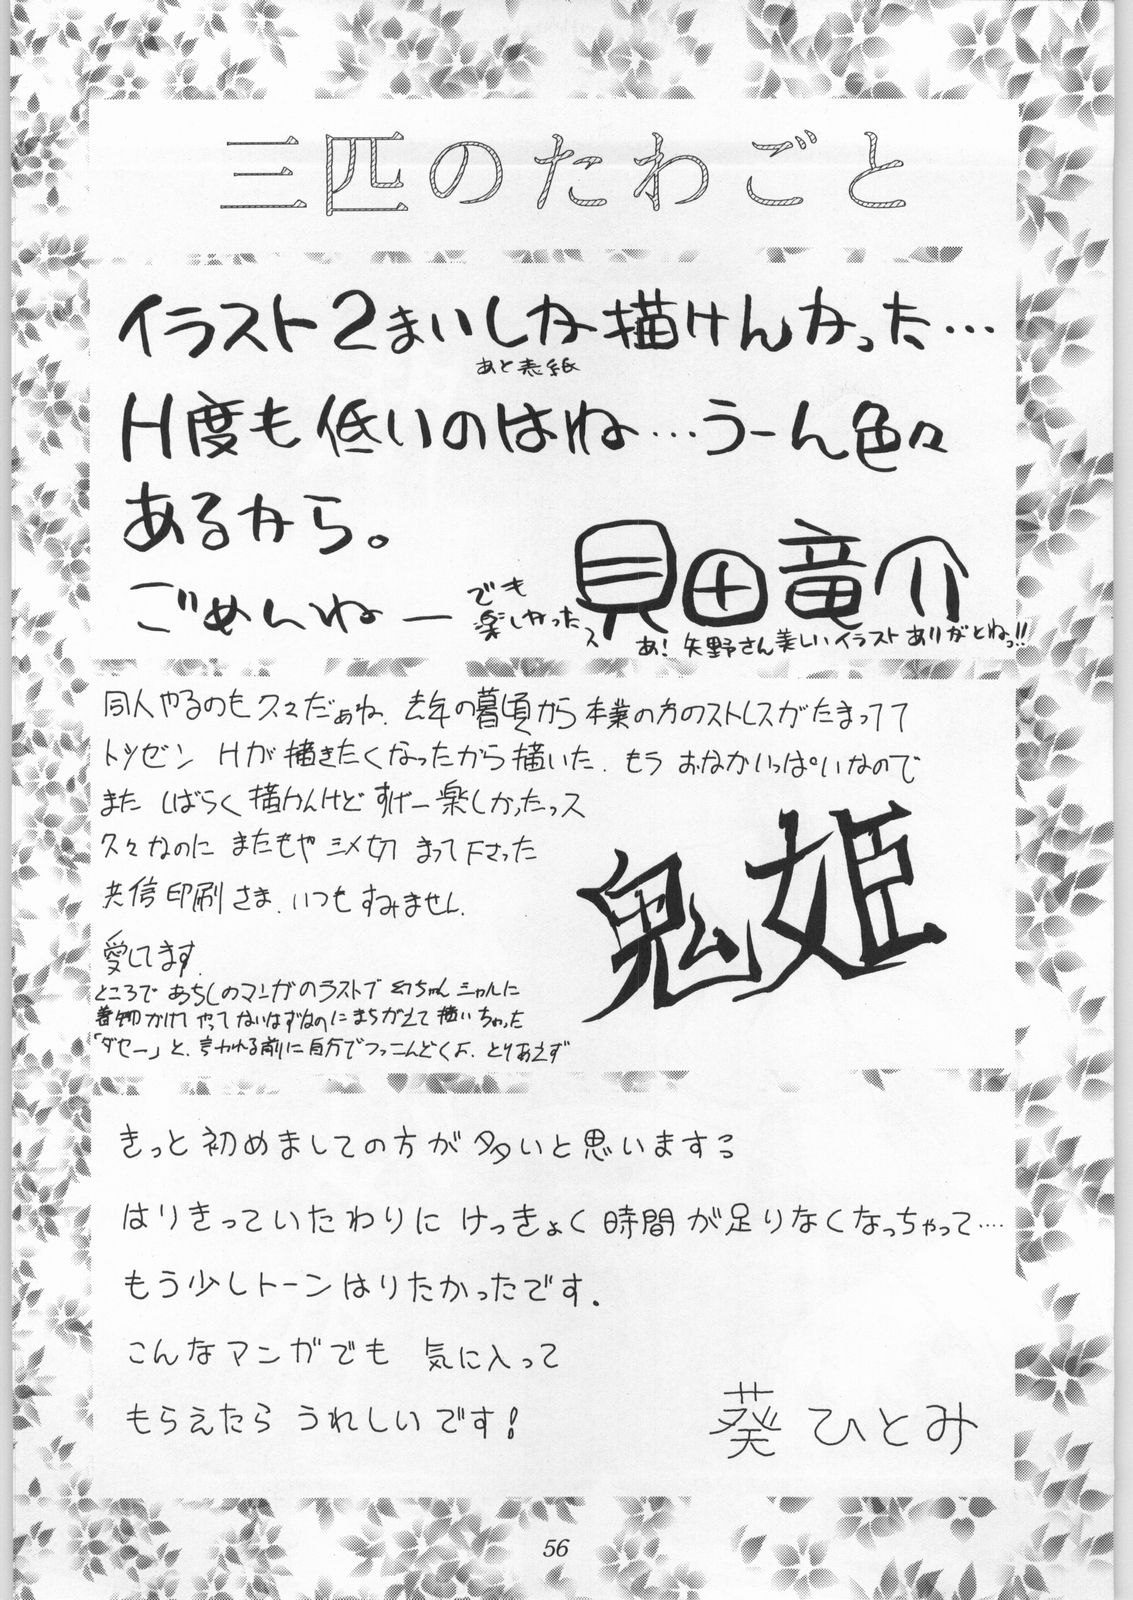 三匹のたわごと
イラスト2まいしか描けんかった…
あと表紙
H度も低いのはね…うーん色々
あるから。
ごめんねー
でも
楽しかったス
貝田竜介
あ! 矢野さん美しいイラスト ありがとねっ!!
同人やるのも久々だぁね. 去年の暮頃から本業の方のストレスがたまってて
トツゼン Hが描きたくなったから描いた. もう おなかいっぱいなので
また しばらく描けんけど すげー楽しかったっス
久々なのに またもや シメ切 まって下さった
共信印刷さま. いつもすみません.
愛してます.
ところで あちしのマンガのラストで 幻ちゃん シャルに
着物かけて やってないはずなのに まちがえて描いちゃった
「ダセー」と. 言われる前に自分でつっこんどくよ. とりあえず
鬼姫
きっと初めましての方が多いと思いますっ
はりきっていたわりに けっきょく時間が足りなくなっちゃって‥‥
もう少しトーンはりたかったです.
こんなマンガでも 気に入って
もらえたら うれしいです!
葵ひとみ
56